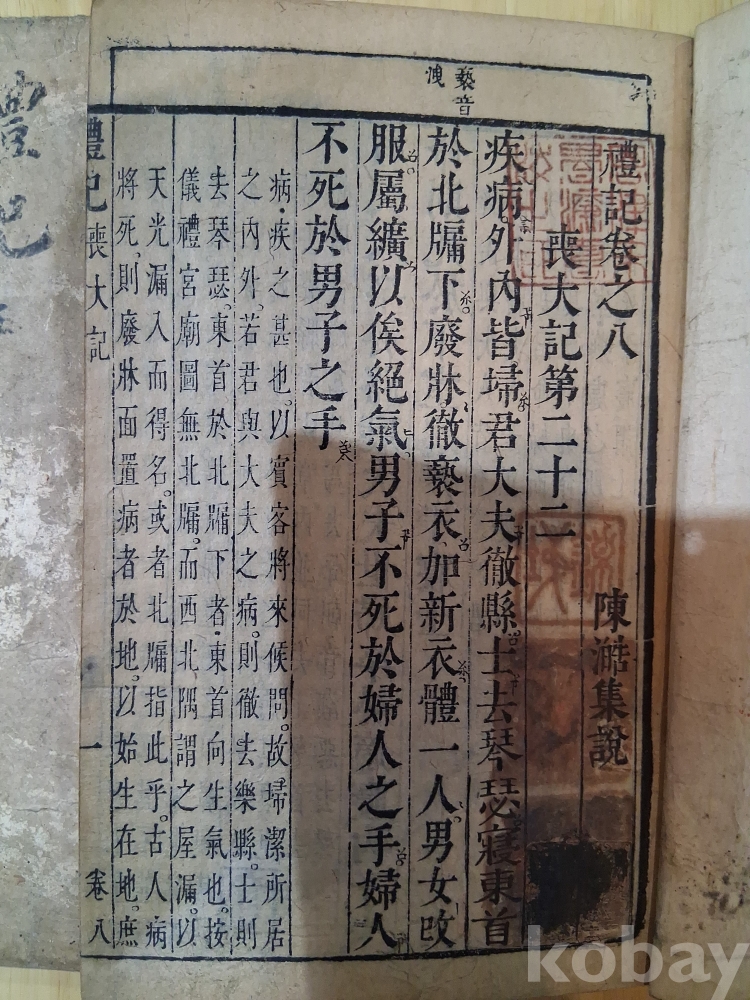 褻音
洩
禮記卷之八
陳澔集說
喪大記第二十二
疾病外內皆埽君大夫徹縣士去琴瑟寢東首
於北牖下廢牀徹褻衣加新衣體一人男女改
服屬纊以俟絕氣男子不死於婦人之手婦人
不死於男子之手
病疾之甚也以賓客將來候問故埽潔所居
之內外若君與大夫之病則徹去樂縣士則
去琴瑟東首於北牖下者東首向生氣也按
儀禮宮廟圖無北牖而西北隅謂之屋漏以
天光漏入而得名或者北牖指此乎古人病
將死則廢牀而置病者於地以始生在地庶
禮記 喪大記 一 卷八
禮記
kobay